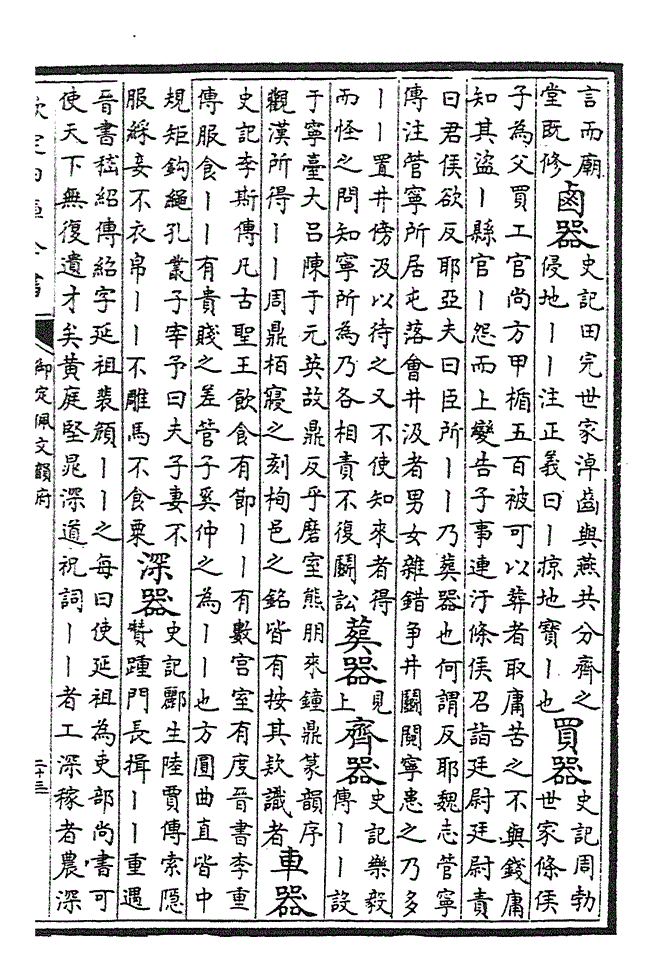 言而廟
堂既修
鹵器
史記田完世家淖齒與燕共分齊之
侵地丨丨注正義曰丨掠地寶丨也
買器
史記周勃
世家條侯
子為父買工官尚方甲楯五百被可以葬者取庸苦之不與錢庸
知其盜丨縣官丨怨而上變告子事連汙條侯召詣廷尉廷尉責
曰君侯欲反耶亞夫曰臣所丨丨乃葬器也何謂反耶魏志管寧
傳注管寧所居屯落會井汲者男女雜錯争井鬭䦧寧患之乃多
丨丨置井傍汲以待之又不使知來者得
而怪之問知寧所為乃各相責不復鬭訟
葬器
見
上
齊器
史記樂毅
傳丨丨設
于寧臺大呂陳于元英故鼎反乎磨室熊朋來鐘鼎篆韻序
觀漢所得丨丨周鼎栢寢之刻栒邑之銘皆有按其欵識者
車器
史記李斯傳凡古聖王飲食有節丨丨有數宮室有度晉書李重
傳服食丨丨有貴賤之差管子奚仲之為丨丨也方圓曲直皆中
規矩鈎繩孔叢子宰予曰夫子妻不
服綵妾不衣帛丨丨不雕馬不食粟
深器
史記酈生陸賈傳索隠
贊踵門長揖丨丨重遇
晉書嵇紹傳紹字延祖裴頠丨丨之每曰使延祖為吏部尚書可
使天下無復遺才矣黄庭堅晁深道祝詞丨丨者工深稼者農深
欽定四庫全書
御定佩文韻府
二十三